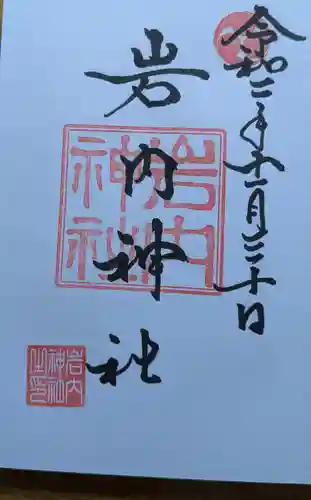 令和二年十一月三十日
岩内神社
岩内神社
岩内神社之印